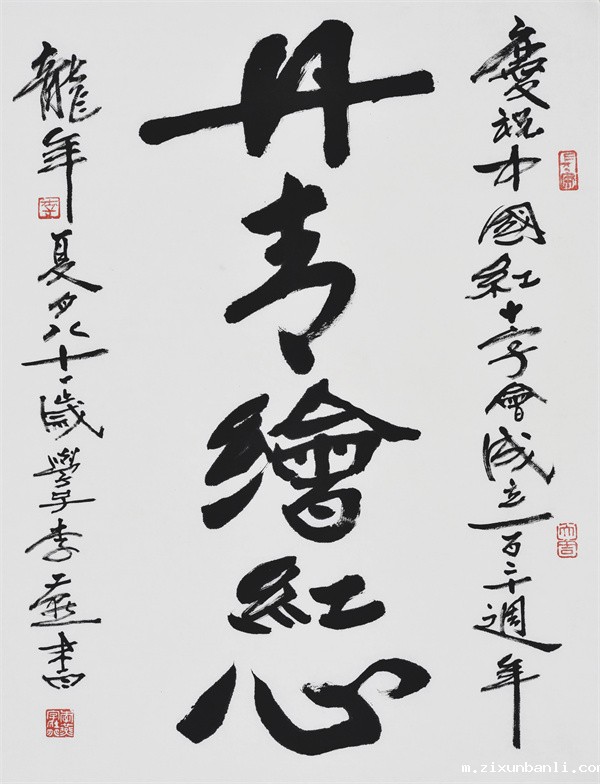 慶祝中國紅十字會成立一百二十週年
丹青繪紅心
龍年
夏月八十一歲學李燕書
m.zixunbanli.co